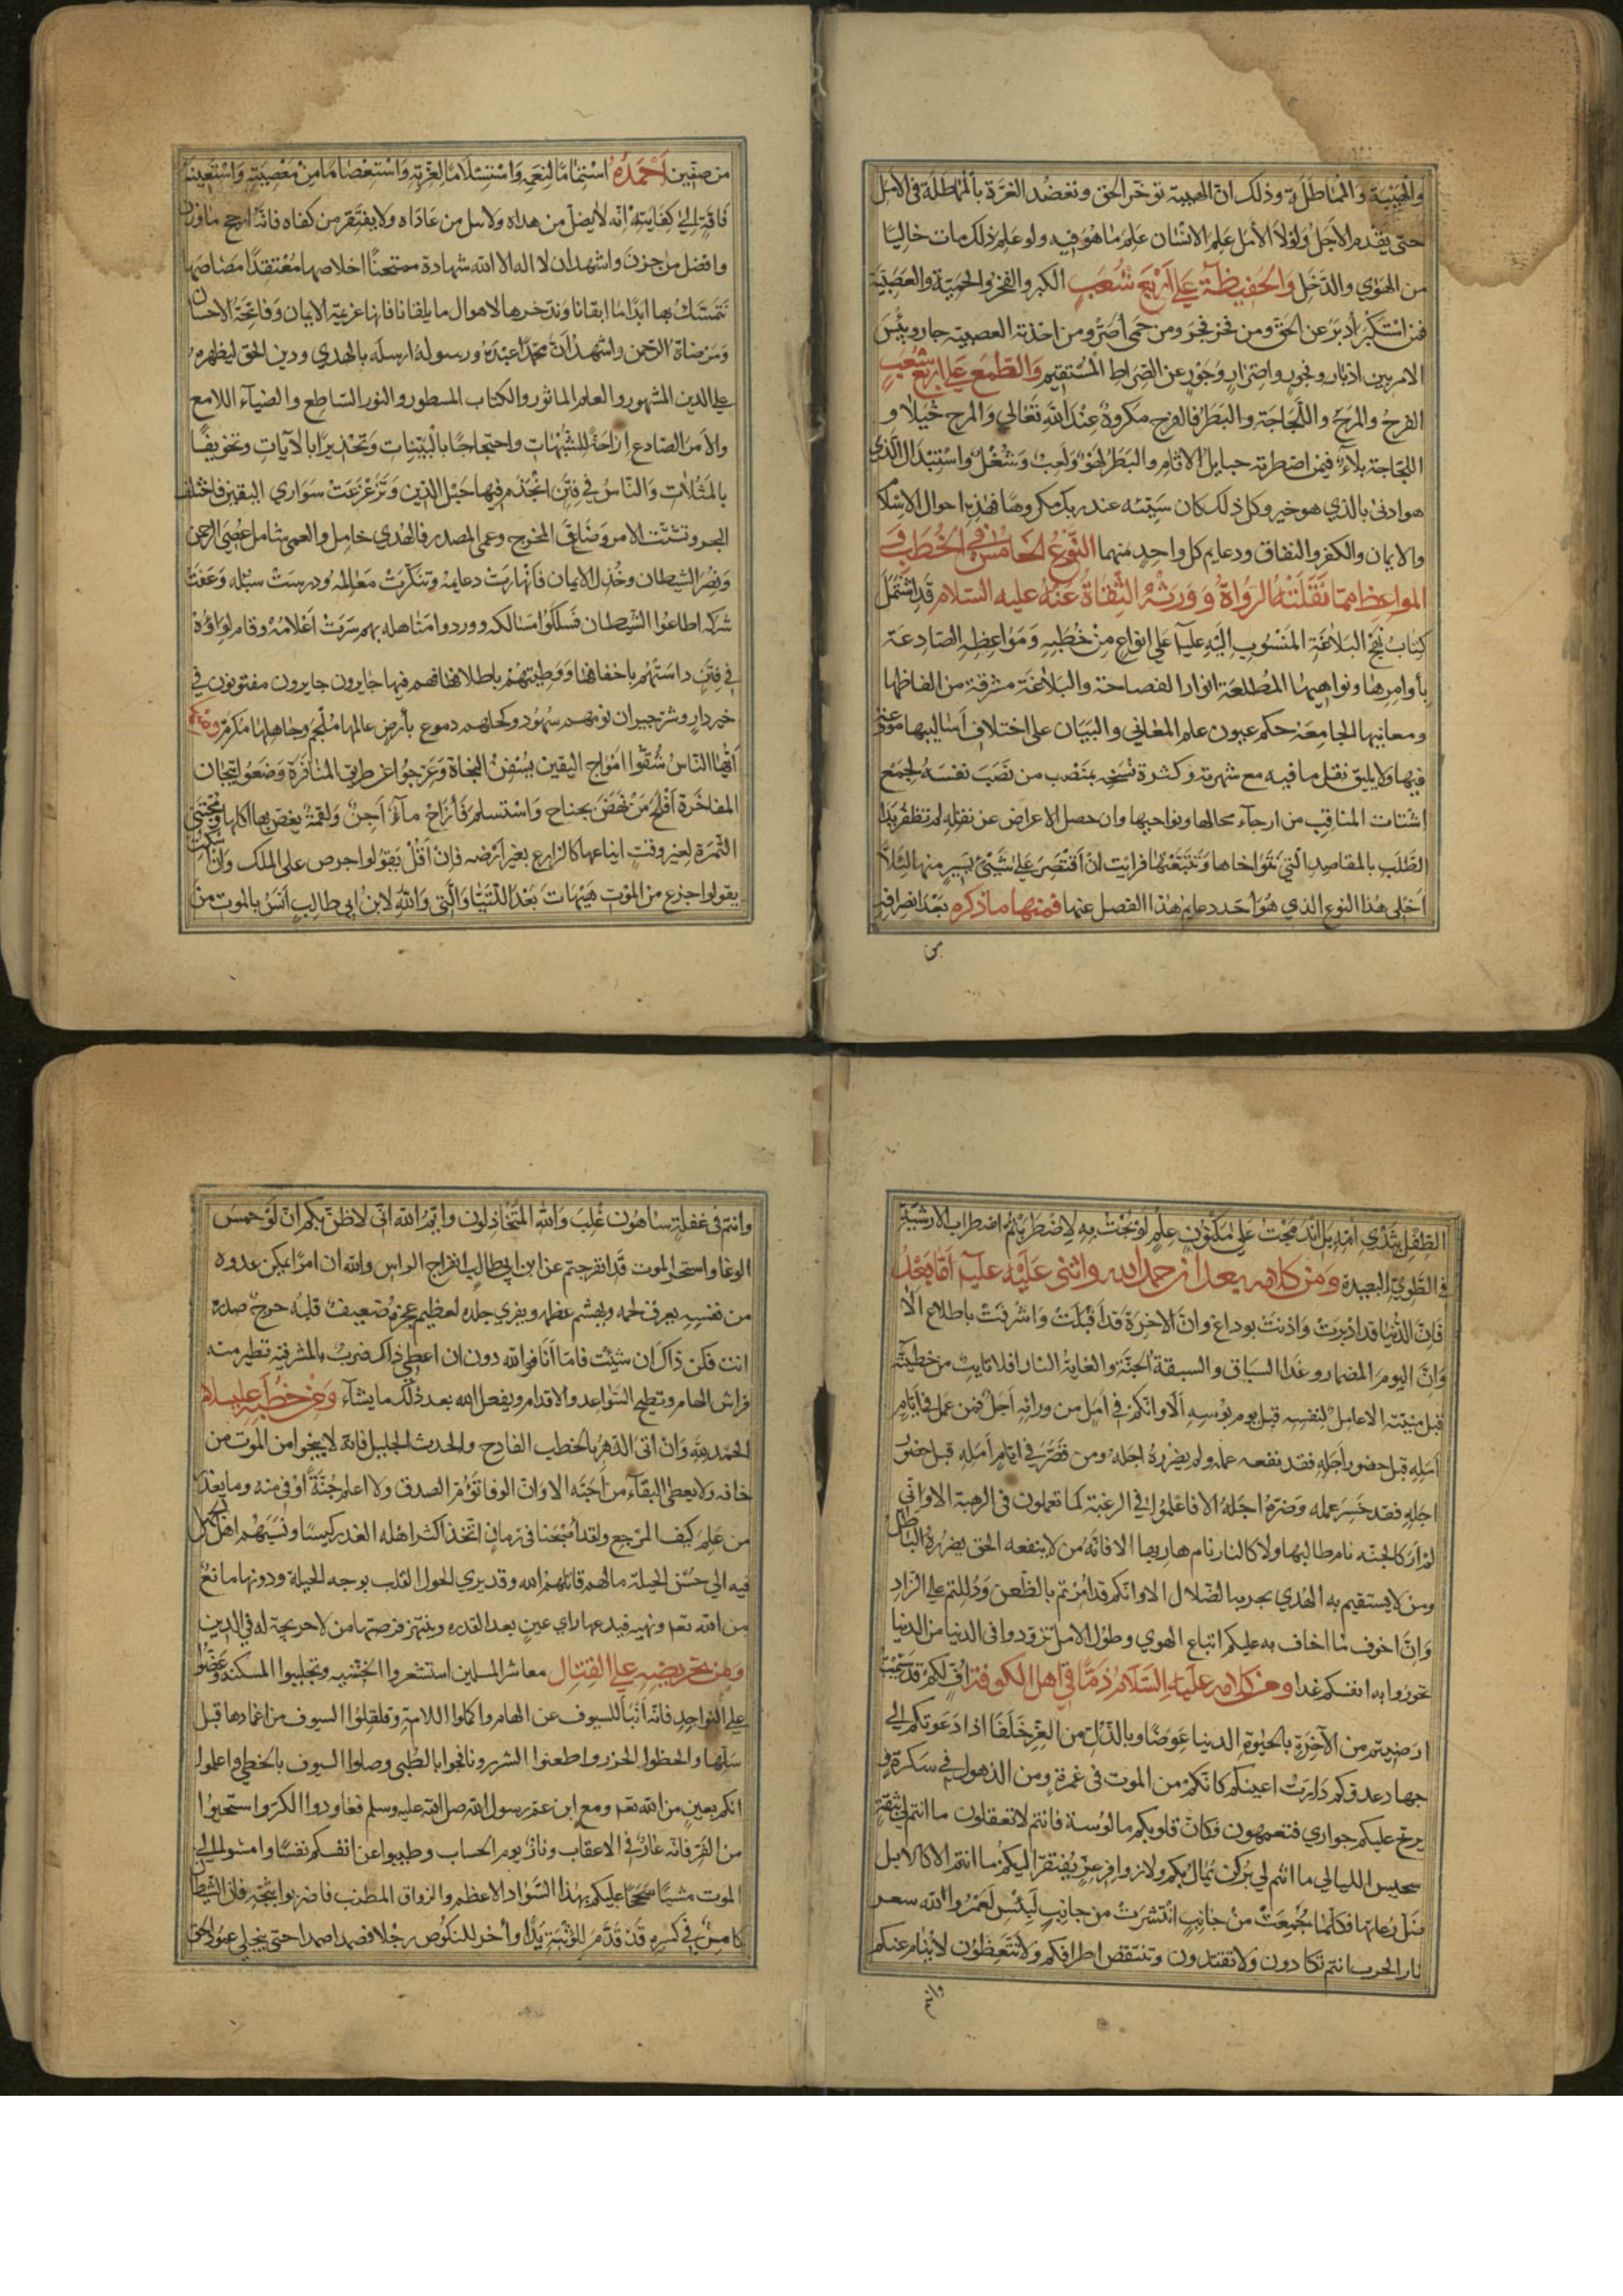 والهيبة والمماطلة وذلك ان الهيبة تؤخر الحق وتعضد الغرة بالمماطلة في الامل
حتى يقدم الاجل ولولا الامل علم الانسان علم ما هو فيه ولو علم ذلك مات خاليا
من الهوي والدخل والحفيظة علي اربع شعب الكبر والفخر والحمية والعصبية
فمن استكبر أدبر عن الحق ومن فخر فجر ومن حمى أصر ومن اخذته العصبية جار وبئس
الامر بين ادبار وفجور واصرار وجور عن الصراط المستقيم والطمع علي اربع شعب
الفرح والمرح واللجاجة والبطر فالفرح مكروه عند الله تعالي والمرح خيلاء و
اللجاجة بلاء فيمن اضطرته حبايل الاثام والبطر لهو ولعب وشغل واستبدال الذي
هو ادنى بالذي هو خير وكل ذلك كان سيئه عند ربك مكروها فهذه احوال الاسلام
والايمان والكفر والنفاق ودعايم كل واحد منهما النوع الخامس في الخطب و
المواعظ مما نقلته الرواة وورثه الثقاة عنه عليه السلام قد اشتمل
كتاب نهج البلاغة المنسوب اليه عليا علي انواع من خطبه ومواعظه الصادعة
بأوامرها ونواهيها المطلعة انوار الفصاحة والبلاغة مشرقة من الفاظها
ومعانيها الجامعة حكم عيون علم المعاني والبيان على اختلاف اساليبها مودعة
فيها ولا يليق نقل ما فيه مع شهرته وكثرة نسخه بمنصب من نصب نفسه لجمع
اشتات المناقب من ارجآء محالها ونواحيها وان حصل الاعراض عن نقله لم تظفر يد
الطلب بالمقاصد التي تتوخاها وتتبعها فرايت ان أقتصر على شيء يسير منها لئلا
اخلى هذا النوع الذي هو احد دعايم هذا الفصل عنها فمنها ما ذكره بعد انصرافه
من
من صفين أحمده استتماما لنعمه واستسلاما لعزته واستعصاما من معصيته واستعينه
فاقة إلي كفايته إنه لا يضل من هداه ولا يئل من عاداه ولا يفتقر من كفاه فانه ارجح ما وزن
وافضل ما خزن واشهد ان لا اله الا الله شهادة ممتحنا اخلاصها معتقدا مصاصها
نتمسك بها ابدا ما ابقانا وندخرها لاهوال ما يلقانا فانها عزيمة الايمان وفاتحة الاحسان
ومرضاة الرحمن واشهد أن محمدا عبده ورسوله ارسله بالهدي ودين الحق ليظهره
علي الدين المشهور والعلم الماثور والكتاب المسطور والنور الساطع والضيآء اللامع
والامر الصادع إزاحة للشبهات واحتجاجا بالبينات وتحذيرا بالآيات وتخويفا
بالمثلات والناس في فتن انجذم فيها حبل الدين وتزعزعت سواري اليقين فاختلف
النجر وتشتت الامر وضاق المخرج وعمي المصدر فالهدي خامل والعمى شامل عصي الرحمن
ونصر الشيطان وخذل الايمان فانهارت دعايمه وتنكرت معالمه ودرست سبله وعفت
شركه اطاعوا الشيطان فسلكوا مسالكه ووردوا مناهله بهم سرت اعلامه وقام لواؤه
في فتن داستهم باخفافها ووطيتهم باظلافها فهم فيها حايرون جايرون مفتونون في
خير دار وشر جيران نومهم سهود وكحلهم دموع بأرض عالمها ملجم وجاهلها مكرم ومنه
أيها الناس شقوا امواج اليقين بسفن النجاة وعرجوا عن طريق المنافرة وضعوا تيجان
المفاخرة افلح من نهض بجناح واستسلم فأراح مآء آجن ولقمة يغص بها آكلها ومجتني
الثمرة لغير وقت ايناعها كالزارع بغير أرضه فان اقل يقولوا حرص على الملك وان سكت
يقولوا جزع من الموت هيهات بعد اللتيا والتي والله لابن ابي طالب آنس بالموت من
الطفل بثدي امه بل اندمجت علي مكنون علم لو بحت به لاضطربتم اضطراب الارشية
في الطوي البعيدة ومن كلامه بعد ان حمد الله واثنى عليه عليه أما بعد
فان الدنيا قد ادبرت واذنت بوداع وان الاخرة قد أقبلت واشرفت باطلاع الا
وان اليوم المضمار وغدا السباق والسبقة الجنة والغاية النار افلا تايب من خطيئته
قبل منيته الا عامل لنفسه قبل يوم بوسه ألا وانكم في امل من ورائه اجل فمن عمل في ايام
امله قبل حضور اجله فقد نفعه عمله ولم يضرره اجله ومن قصر في ايام أمله قبل حضور
اجله فقد خسر عمله وضره اجله الا فاعملوا في الرغبة كما تعملون في الرهبة الا واني
لم أر كالجنه نام طالبها ولا كالنار نام هاربها الا فانه من لا ينفعه الحق يضرره الباطل
ومن لا يستقيم به الهدي يجر به الضلال الا وانكم قد امرتم بالظعن ودللتم علي الزاد
وان اخوف ما اخاف به عليكم اتباع الهوي وطول الامل تزودوا في الدنيا من الدنيا
تحوزوا به انفسكم غدا ومن كلامه عليه السلام ذما في اهل الكوفة اف لكم قد سئمت
ارضيتم من الآخرة بالحيوة الدنيا عوضا وبالذل من العز خلفا اذا دعوتكم إلي
جهاد عدوكم دارت اعينكم كانكم من الموت في غمرة ومن الذهول في سكرة
يرتج عليكم حواري فتعمهون فكان قلوبكم مالوسة فانتم لا تعقلون ما انتم لي بثقة
سجيس الليالي ما انتم لي بركن يمال بكم ولا زوافر عز يفتقر اليكم ما انتم الا كالابل
ضل رعاتها فكلما جمعت من جانب انتشرت من جانب لبئس لعمر الله سعر
نار الحرب انتم تكادون ولا تكيدون وتنتقص اطرافكم ولا تتعظون لا ينام عنكم
وانتم
وانتم في غفلة ساهون غلب والله المتخاذلون وايم الله اني لاظن بكم ان لو حمس
الوغا واستحر الموت قد انفرجتم عن ابن ابي طالب انفراج الراس والله ان امرا يمكن عدوه
من نفسه يعرق لحمه ويهشم عظمه ويفري جلده لعظيم عجزه ضعيف قلبه حرج صدره
انت فكن ذاك ان شئت فاما أنا فوالله دون ان اعطي ذاك ضرب بالمشرفية تطير منه
فراش الهام وتطيح السواعد والاقدام ويفعل الله بعد ذلك ما يشآء ومن خطبه عليه السلام
الحمد لله وان اتى الدهر بالخطب الفادح والحدث الجليل فانه لا ينجوا من الموت من
خافه ولا يعطى البقآء من احبه الا وان الوفا تؤم الصدق ولا اعلم جنة اوفي منه وما يغدر
من علم كيف المرجع ولقد أصبحنا في زمان اتخذ اكثر اهله الغدر كيسا ونسبهم اهل الجهل
فيه الي حسن الحيلة مالهم قاتلهم الله وقد يري الحول القلب بوجه الحيلة ودونها مانع
من الله تعم ونهيه فيدعها راي عين بعد القدره وينتهز فرصتها من لا حريجة له في الدين
ومن تحريضه علي القتال معاشر المسلمين استشعروا الخشيه وتجلببوا السكينه وعضوا
علي النواجذ فانه أنبا للسيوف عن الهام واكملوا اللامة وقلقلوا السيوف من اغمادها قبل
سلها والحظوا الخزر واطعنوا الشزر ونافحوا بالظبي وصلوا السيوف بالخطى واعلموا
انكم بعين من الله تعم ومع ابن عم رسول الله صل الله عليه وسلم فعاودوا الكر واستحيوا
من الفر فانه عار في الاعقاب ونار يوم الحساب وطيبوا عن انفسكم نفسا وامشوا إلي
الموت مشيا سجحا عليكم بهذا السواد الاعظم والرواق المطنب فاضربوا ثبجه فان الشيطان
كامن في كسره قد قدم للوثبة يدا وأخر للنكوص رجلا فصمدا صمدا حتى ينجلي عمود الحق